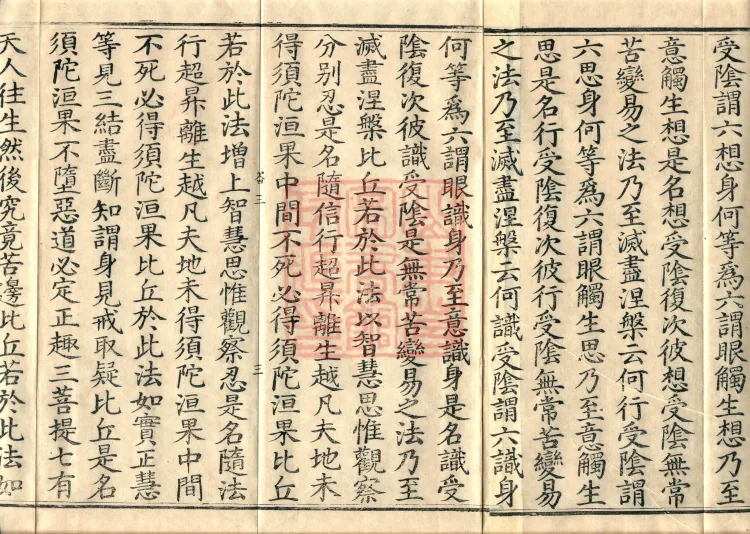 受陰謂六想身何等爲六謂眼觸生想乃至
意觸生想是名想受陰復次彼想受陰無常
苦變易之法乃至滅盡涅槃云何行受陰謂
六思身何等爲六謂眼觸生思乃至意觸生
思是名行受陰復次彼行受陰無常苦變易
之法乃至滅盡涅槃云何識受陰謂六識身
何等爲六謂眼識身乃至意識身是名識受
陰復次彼識受陰是無常苦變易之法乃至
滅盡涅槃比丘若於此法以智慧思惟觀察
分别忍是名隨信行超昇離生越凡夫地未
得須陀洹果中間不死必得須陀洹果比丘
谷三
三
若於此法增上智慧思惟觀察忍是名隨法
行超昇離生越凡夫地未得須陀洹果中間
不死必得須陀洹果比丘於此法如實正慧
等見三結盡斷知謂身見戒取疑比丘是名
須陀洹果不墮惡道必定正趣三菩提七有
天人往生然後究竟苦邊比丘若於此法如